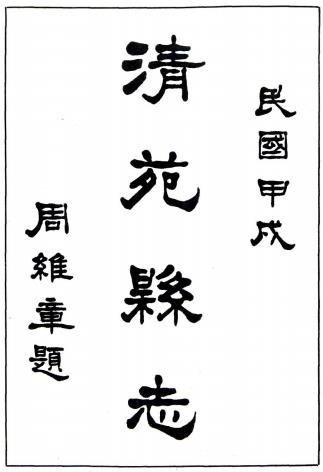 民國甲戌
清苑縣志
周維章題